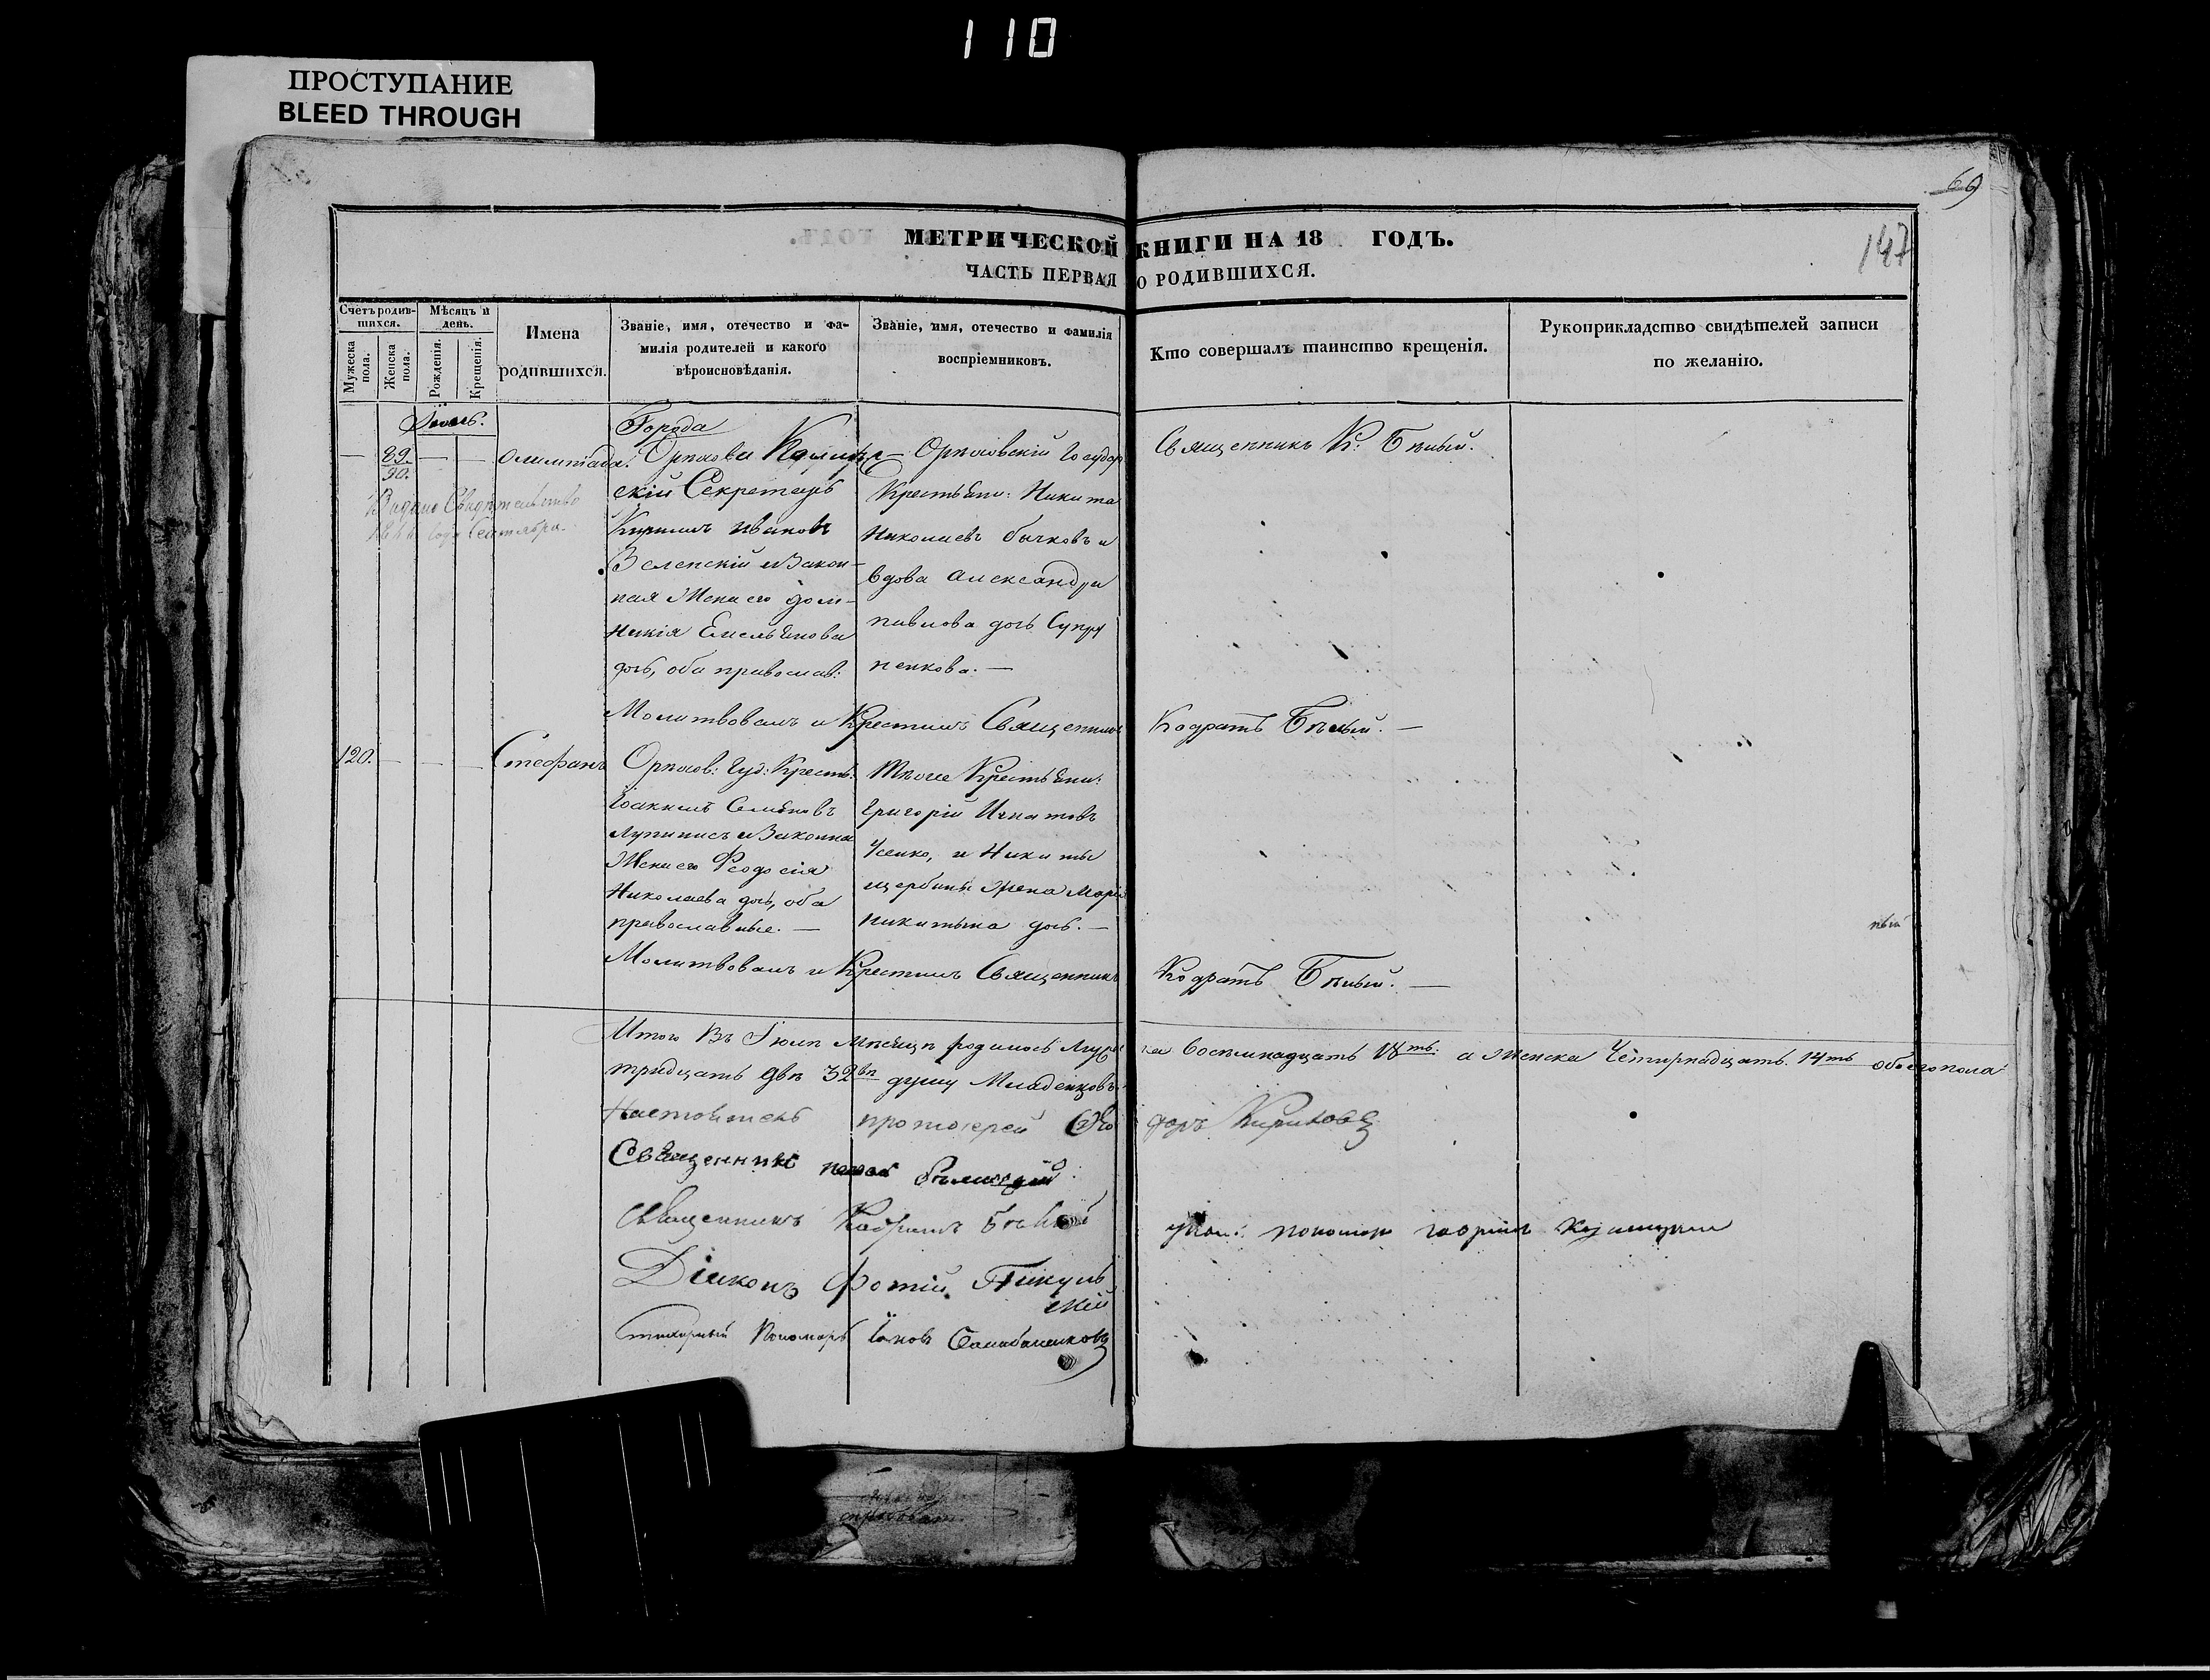 110
ПРОСТУПАНИЕ
BLEED THROUGH
69
147
МЕТРИЧЕСКОЙ КНИГИ НА 18 ГОДЪ.
ЧАСТЬ ПЕРВАЯ О РОДИВШИХСЯ.
Счетъ родив-
шихся.
Мужеска пола.
Женска пола.
Мѣсяцъ и
день.
Рожденія.
Крещенія.
Имена
родившихся.
Званіе, имя, отечество и фа-
милія родителей и какого
вѣроисновѣданія.
Званіе, имя, отечество и фамилія
воспріемниковъ.
Кто совершалъ таинство крещенія.
Рукоприкладство свидѣтелей записи
по желанію.
Іюль.
89.
90.
Олимпіада.
Выдано Свидѣтельство
года Сентября
Города
Орѣхова
скій Секретарь
Кирилъ Ивановъ
Зеленскій и Закон-
ная Жена его Дом-
никія Емельянова
дочь, оба православ:
Орѣховскій Государ
Крестьяни: Никита
Николаевъ Бычковъ и
вдова Александра
Павлова дочь Супру
ненкова. —
Священникъ К: Бѣлый.
Молитвовалъ и Крестилъ Священникъ Кодратъ Бѣлый. —
120.
Стефанъ
Орѣхов: Гуд: Кресть:
Іоакимъ Семёновъ
и Законна
Жена его Феодосія
Николаева дочь, оба
православные. —
Тѣже Крестьяни:
Григорій Игнатовъ
Усенко, и Никиты
Щербины жена Марія
Никитина дочь. —
ный
Молитвовалъ и Крестилъ Священникъ Кодратъ Бѣлый. —
Итого Въ Іюлѣ Мѣсяцѣ родилось Муже ска Восемнадцать 18ть. а Женска Четырнадцать. 14ть обоего пола
тридцать двѣ 32вѣ душы Младенцовъ.
Настоятель протоіерей Ѳео доръ Кириловъ
Священникъ
Священникъ Кодратъ Бѣлый
пономарь
Діаконъ Фотій Пикуль
скій
Стихарный Пономарь Іаковъ